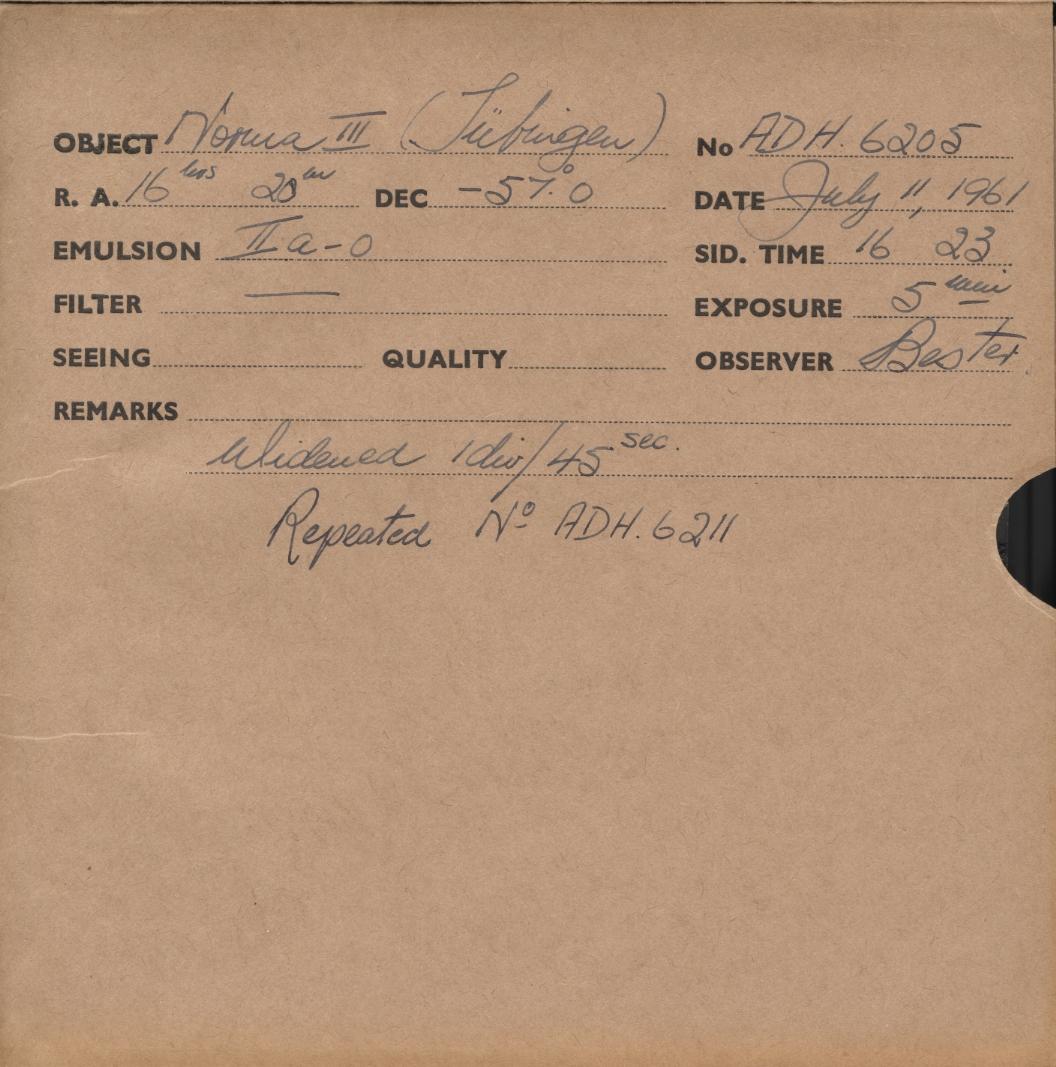 OBJECT Norma III (Tübingen) No ADH. 6205
R. A. 16 hrs 20 m DEC -57°.0 DATE July 11, 1961
EMULSION IIa-O SID. TIME 16 23
FILTER — EXPOSURE 5 min
SEEING QUALITY OBSERVER Bester
REMARKS
Widened 1 div/45 sec.
Repeated Nº ADH. 6211